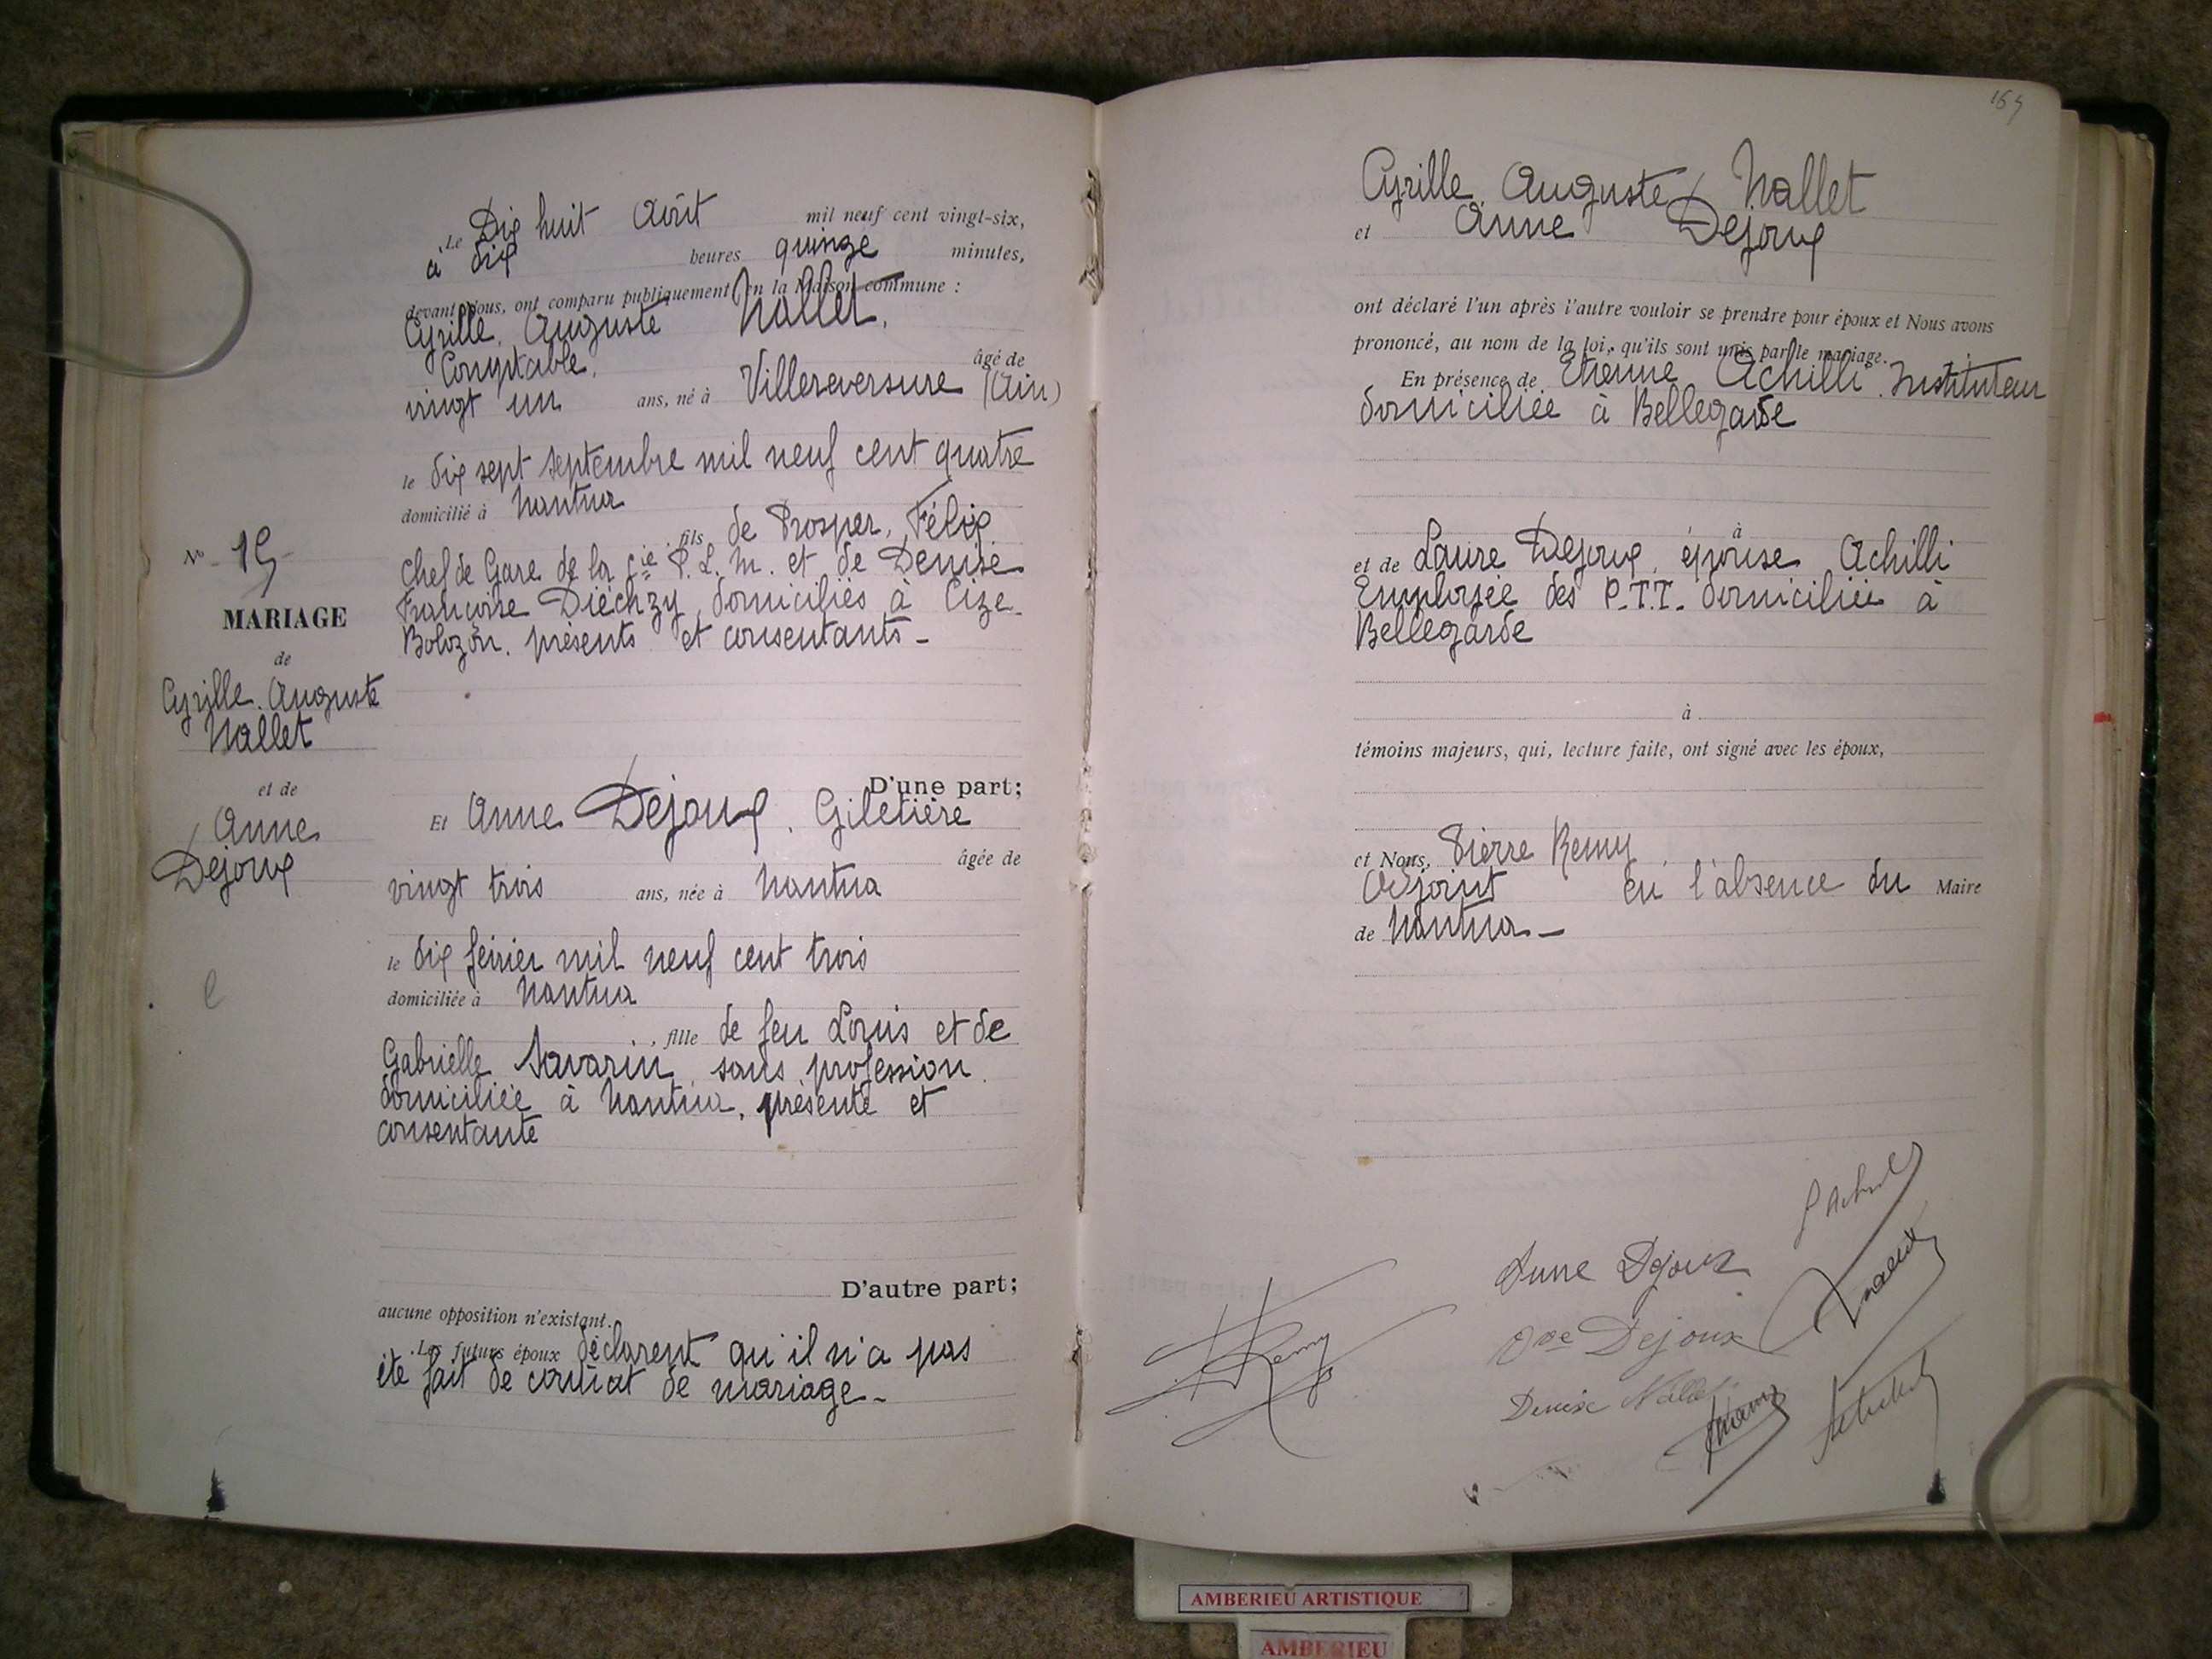 Le Dix huit Août mil neuf cent vingt-six,
à dix heures quinze minutes,
devant Nous, ont comparu publiquement en la Maison commune :
Cyrille, Auguste Nallet,
Comptable, âgé de
vingt un ans, né à Villereversure (Ain)
le dix sept septembre mil neuf cent quatre
domicilié à Nantua
, fils de Prosper, Félix
chef de Gare de la Cie P.L.M. et de Denise
Françoise Diéchzy, domiciliés à Cize-
Bolozon. présents et consentants -
D'une part;
Et Anne Dejoux, Giletière
âgée de
vingt trois ans, née à Nantua
le dix février mil neuf cent trois
domiciliée à Nantua
, fille de feu Louis et de
Gabrielle Savarin, sans profession
domiciliée à Nantua, présente et
consentante
D'autre part;
aucune opposition n'existant.
Les futurs époux déclarent qu'il n'a pas
été fait de contrat de mariage -
No 19
MARIAGE
de
Cyrille, Auguste
Nallet
et de
Anne
Dejoux
Cyrille, Auguste Nallet
et Anne Dejoux
ont déclaré l'un après l'autre vouloir se prendre pour époux et Nous avons
prononcé, au nom de la loi, qu'ils sont unis par le mariage.
En présence de Etienne Achilli. Instituteur
domiciliée à Bellegarde
à
et de Laure Dejoux, épouse Achilli
Employée des P.T.T. domiciliée à
Bellegarde
à
témoins majeurs, qui, lecture faite, ont signé avec les époux,
et Nous, Pierre Remy
Adjoint en l'absence du Maire
de Nantua -
Anne Dejoux
Vve Dejoux
Denise Nallet
Remy
AMBERIEU ARTISTIQUE
AMBERIEU